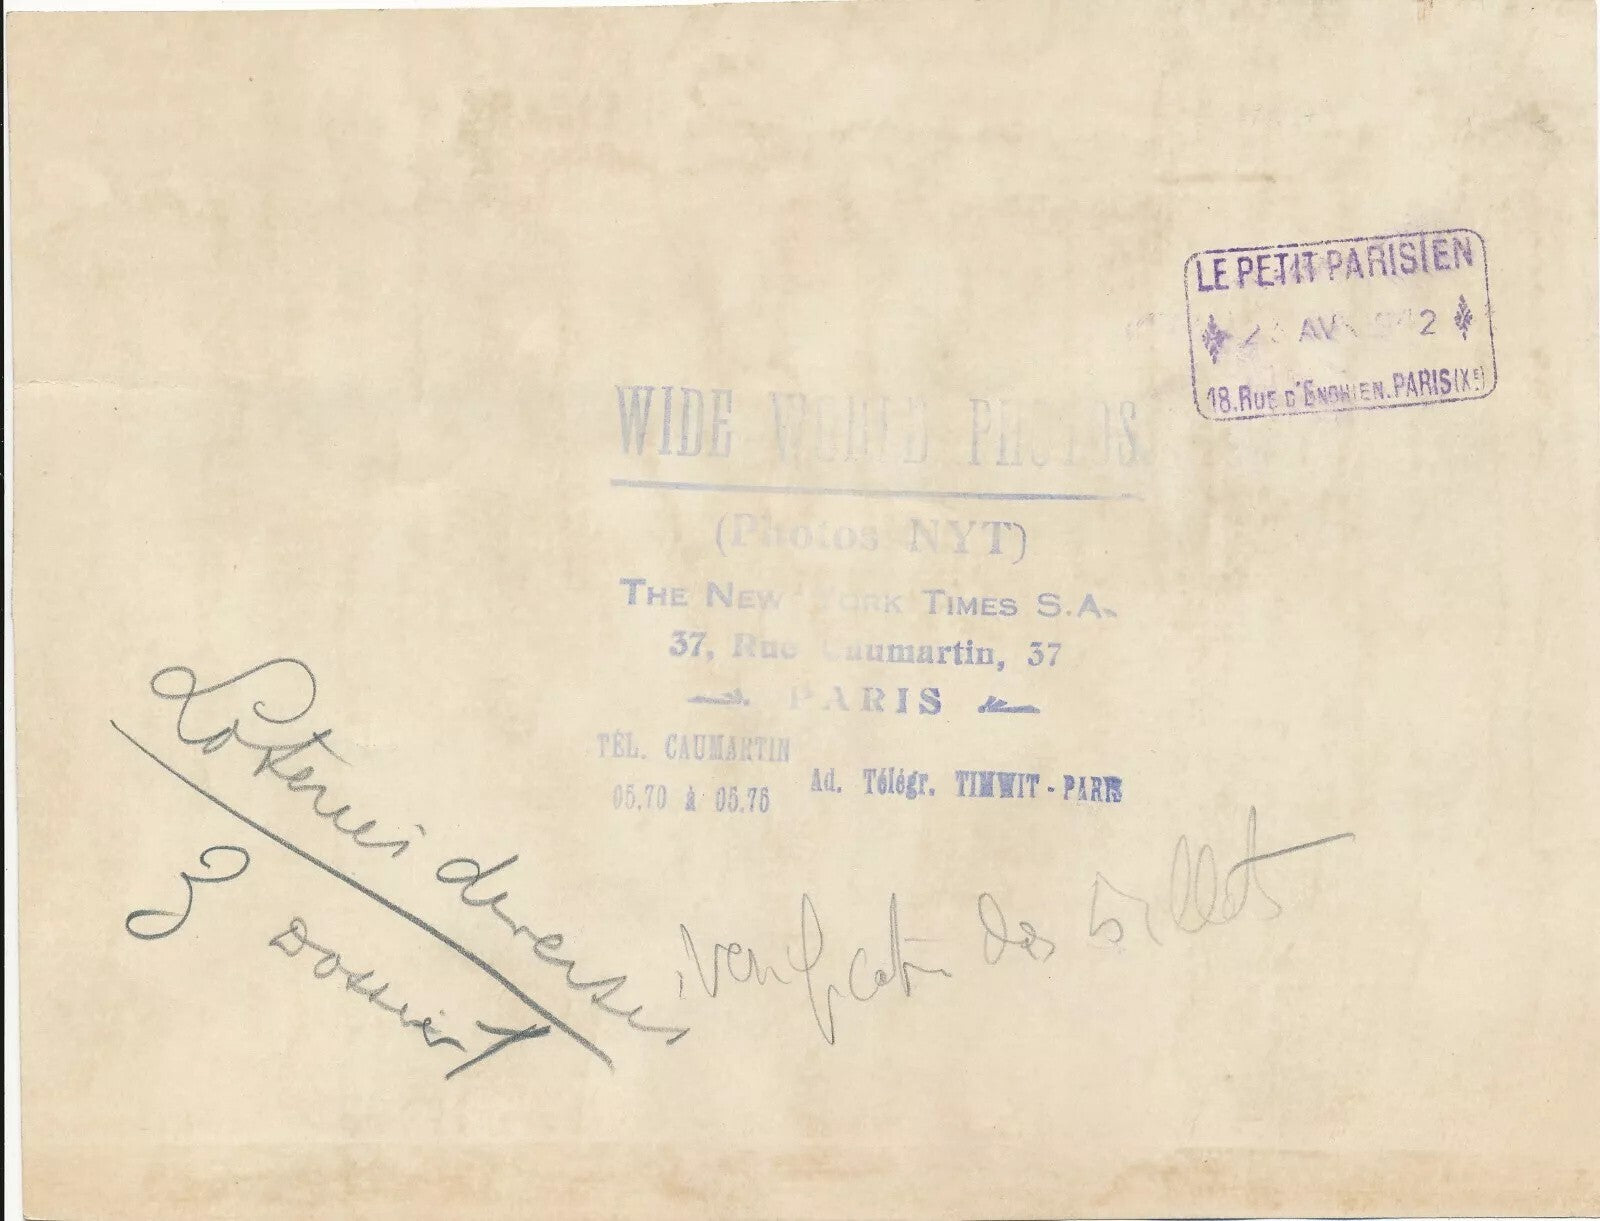 LE PETIT PARISIEN
AV 2
18. RUE D'ENGHIEN. PARIS (Xe)
WIDE WORLD PHOTOS
(Photos NYT)
THE NEW YORK TIMES S.A.
37, Rue Caumartin, 37
PARIS
TÉL. CAUMARTIN
05.70 à 05.75
Ad. Télégr. TIMWIT - PARIS
Loteries diverses
Dossier
verification des billets